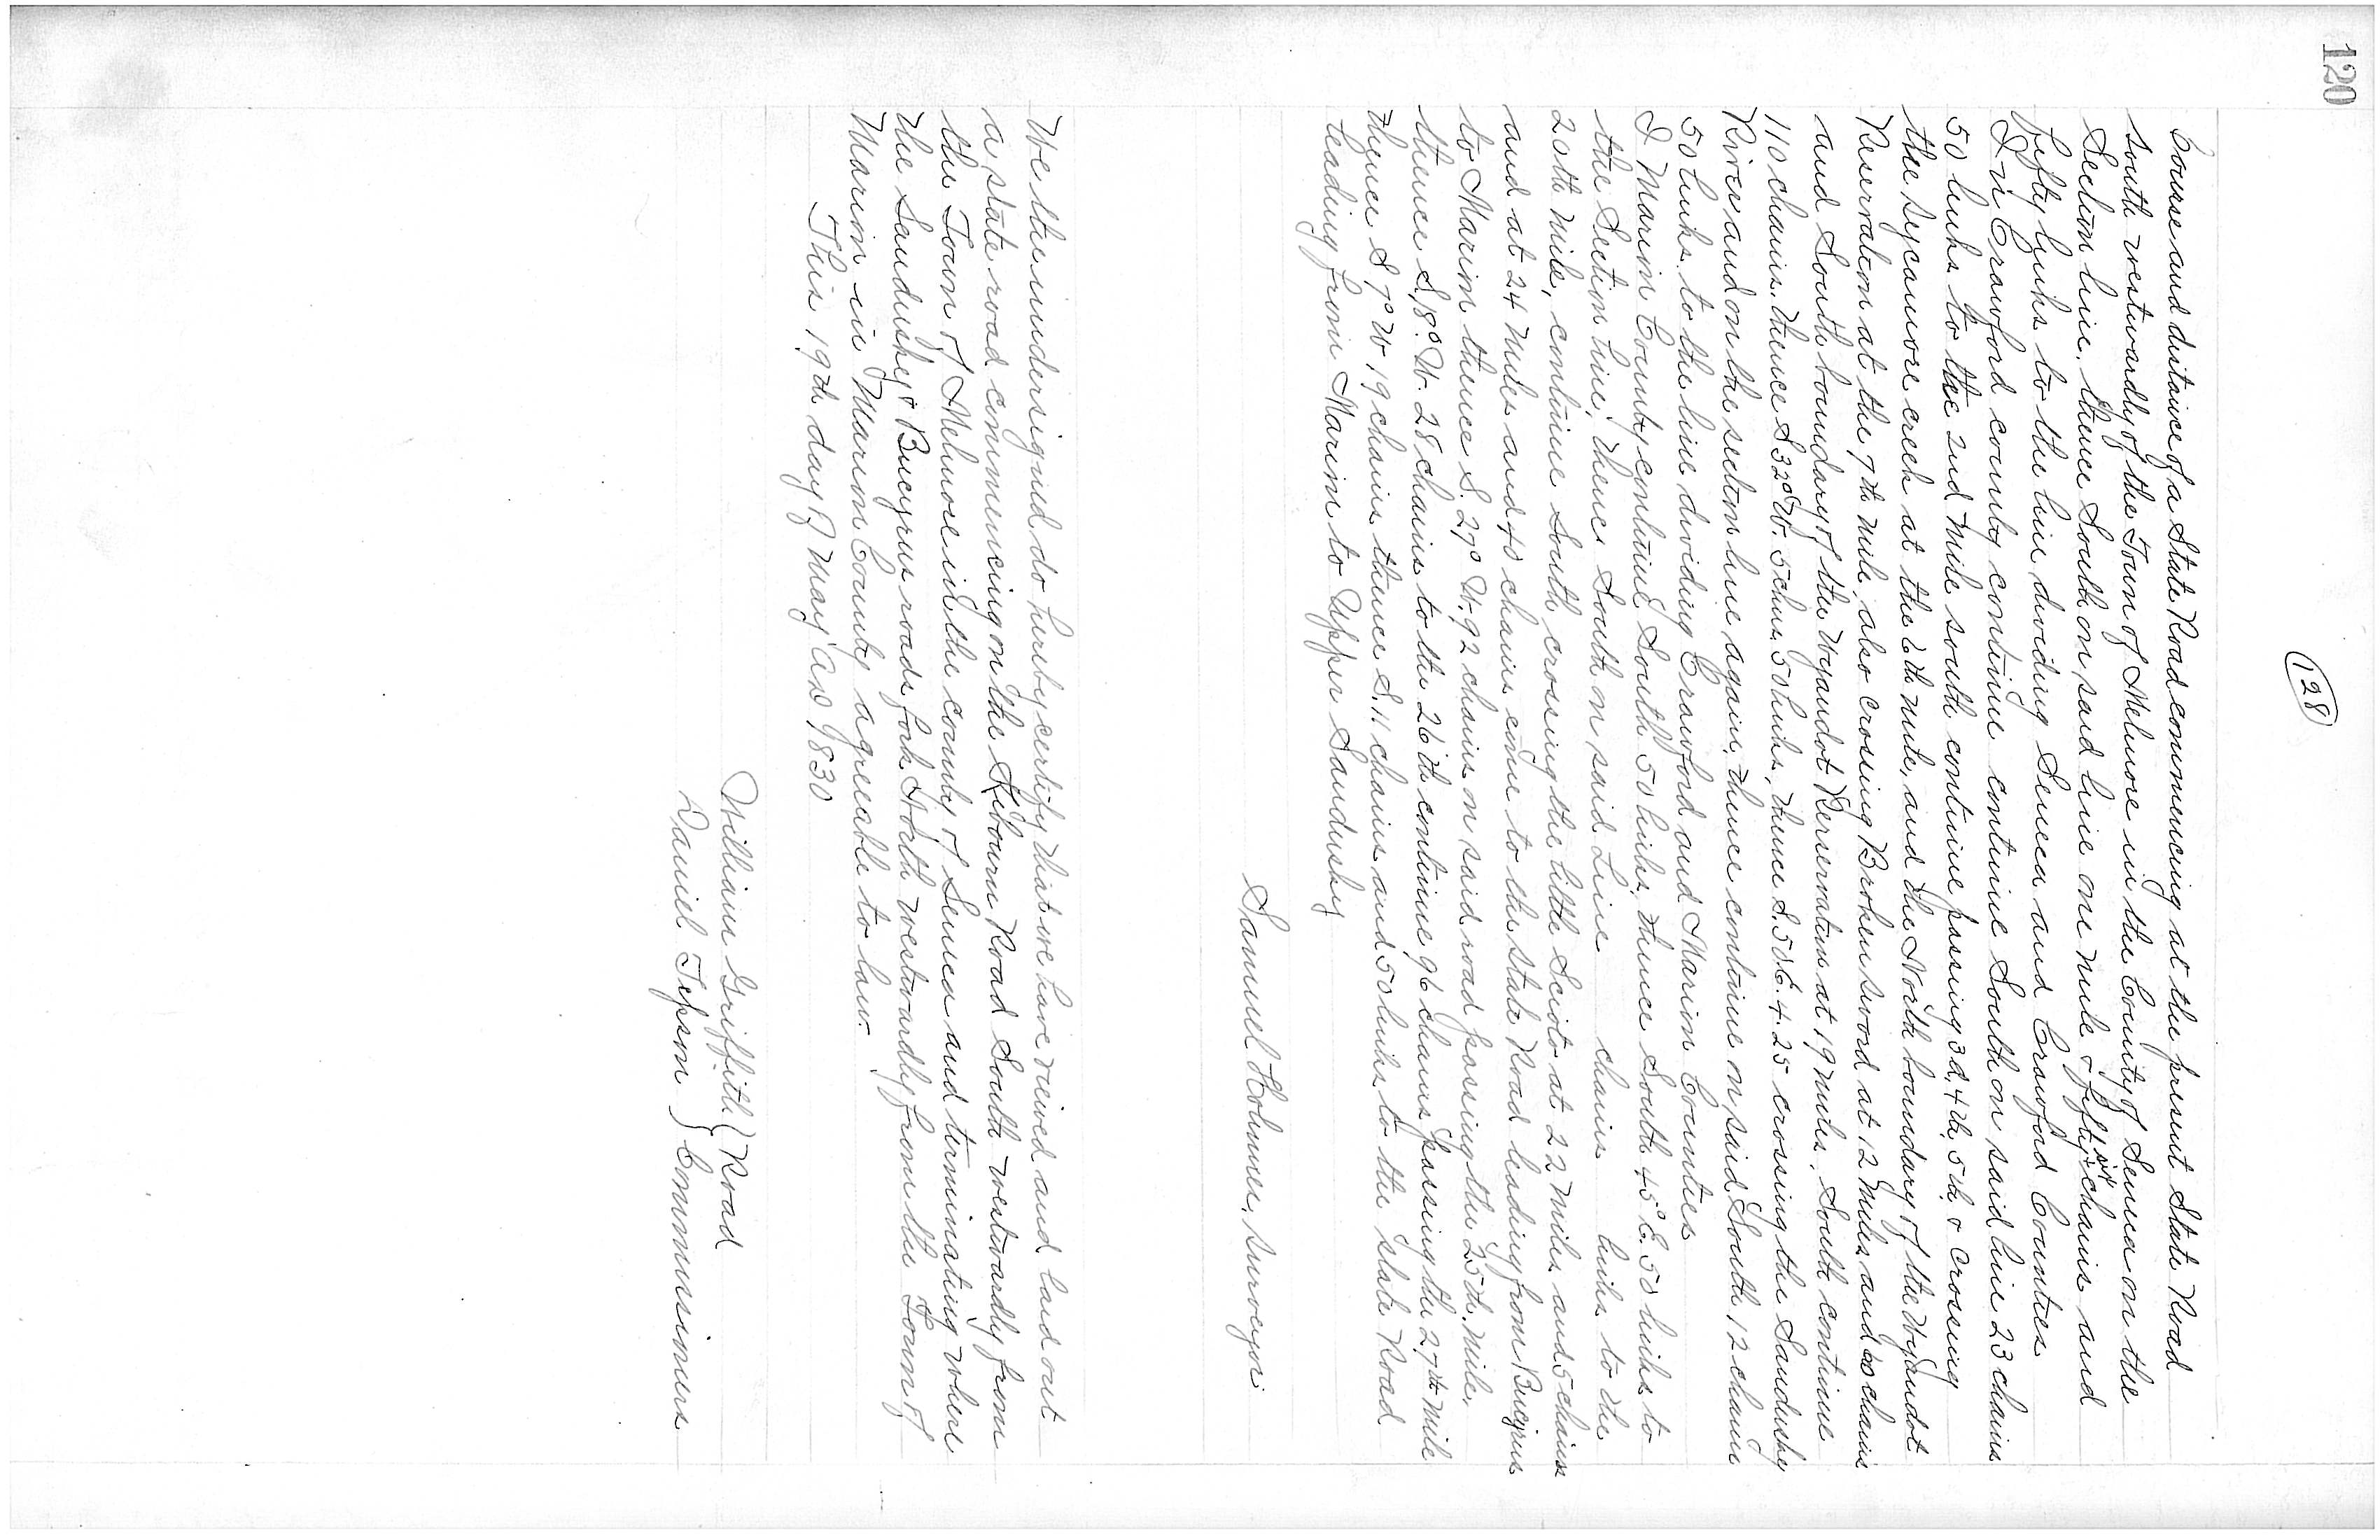 120
(128)
Course and distance of a State Road commencing at the present State Road
South westwardly of the Town of Melmore in the County of Seneca on the
Section line, thence South on said line one mile & fifty six chains and
fifty links to the line dividing Seneca and Crawford Counties
In Crawford county continue continue South on said line 23 chains
50 links to the 2nd mile south continue passing 3d, 4th, 5th & crossing
the sycamore creek at the 6th mile, and the North boundary of the Wyandot
Reservation at the 7th mile, also crossing Broken sword at 12 miles and 40 chains
and South boundary of the Wyandot Reservation at 19 miles, South continue
110 chains, thence S 32° W. 5 chns 50 links, thence S. 50 E. 4. 25 crossing the Sandusky
River and on the section line again, thence continue on said South 12 chains
50 links, to the line dividing Crawford and Marion Counties
I Marion County continue South 50 links, thence South 45° E. 50 links to
the Section line, thence South on said Line chains links to the
20th mile, continue South crossing the little Scioto at 22 miles and 5 chains
and at 24 miles and 40 chains come to the State Road leading from Bucyrus
to Marion thence S. 27° W. 92 chains on said road passing the 25th. mile,
thence S, 8° W. 28 chains to the 26th continue 96 chains passing the 27th mile
thence S 7° W 19 chains thence S. 11 chains and 50 links to the state Road
leading from Marion to Upper Sandusky
Samuel Holmes, surveyor.
We the undersigned do hereby certify that we have viewed and laid out
a state road commencing on the Kilbourn Road South westwardly from
the Town of Melmore in the county of Seneca and terminating where
the Sandusky & Bucyrus roads fork North westwardly from the Town of
Marion in Marion County agreeable to law.
This 19th day of May AD 1830
William Griffith } Road
Daniel } Commissioners